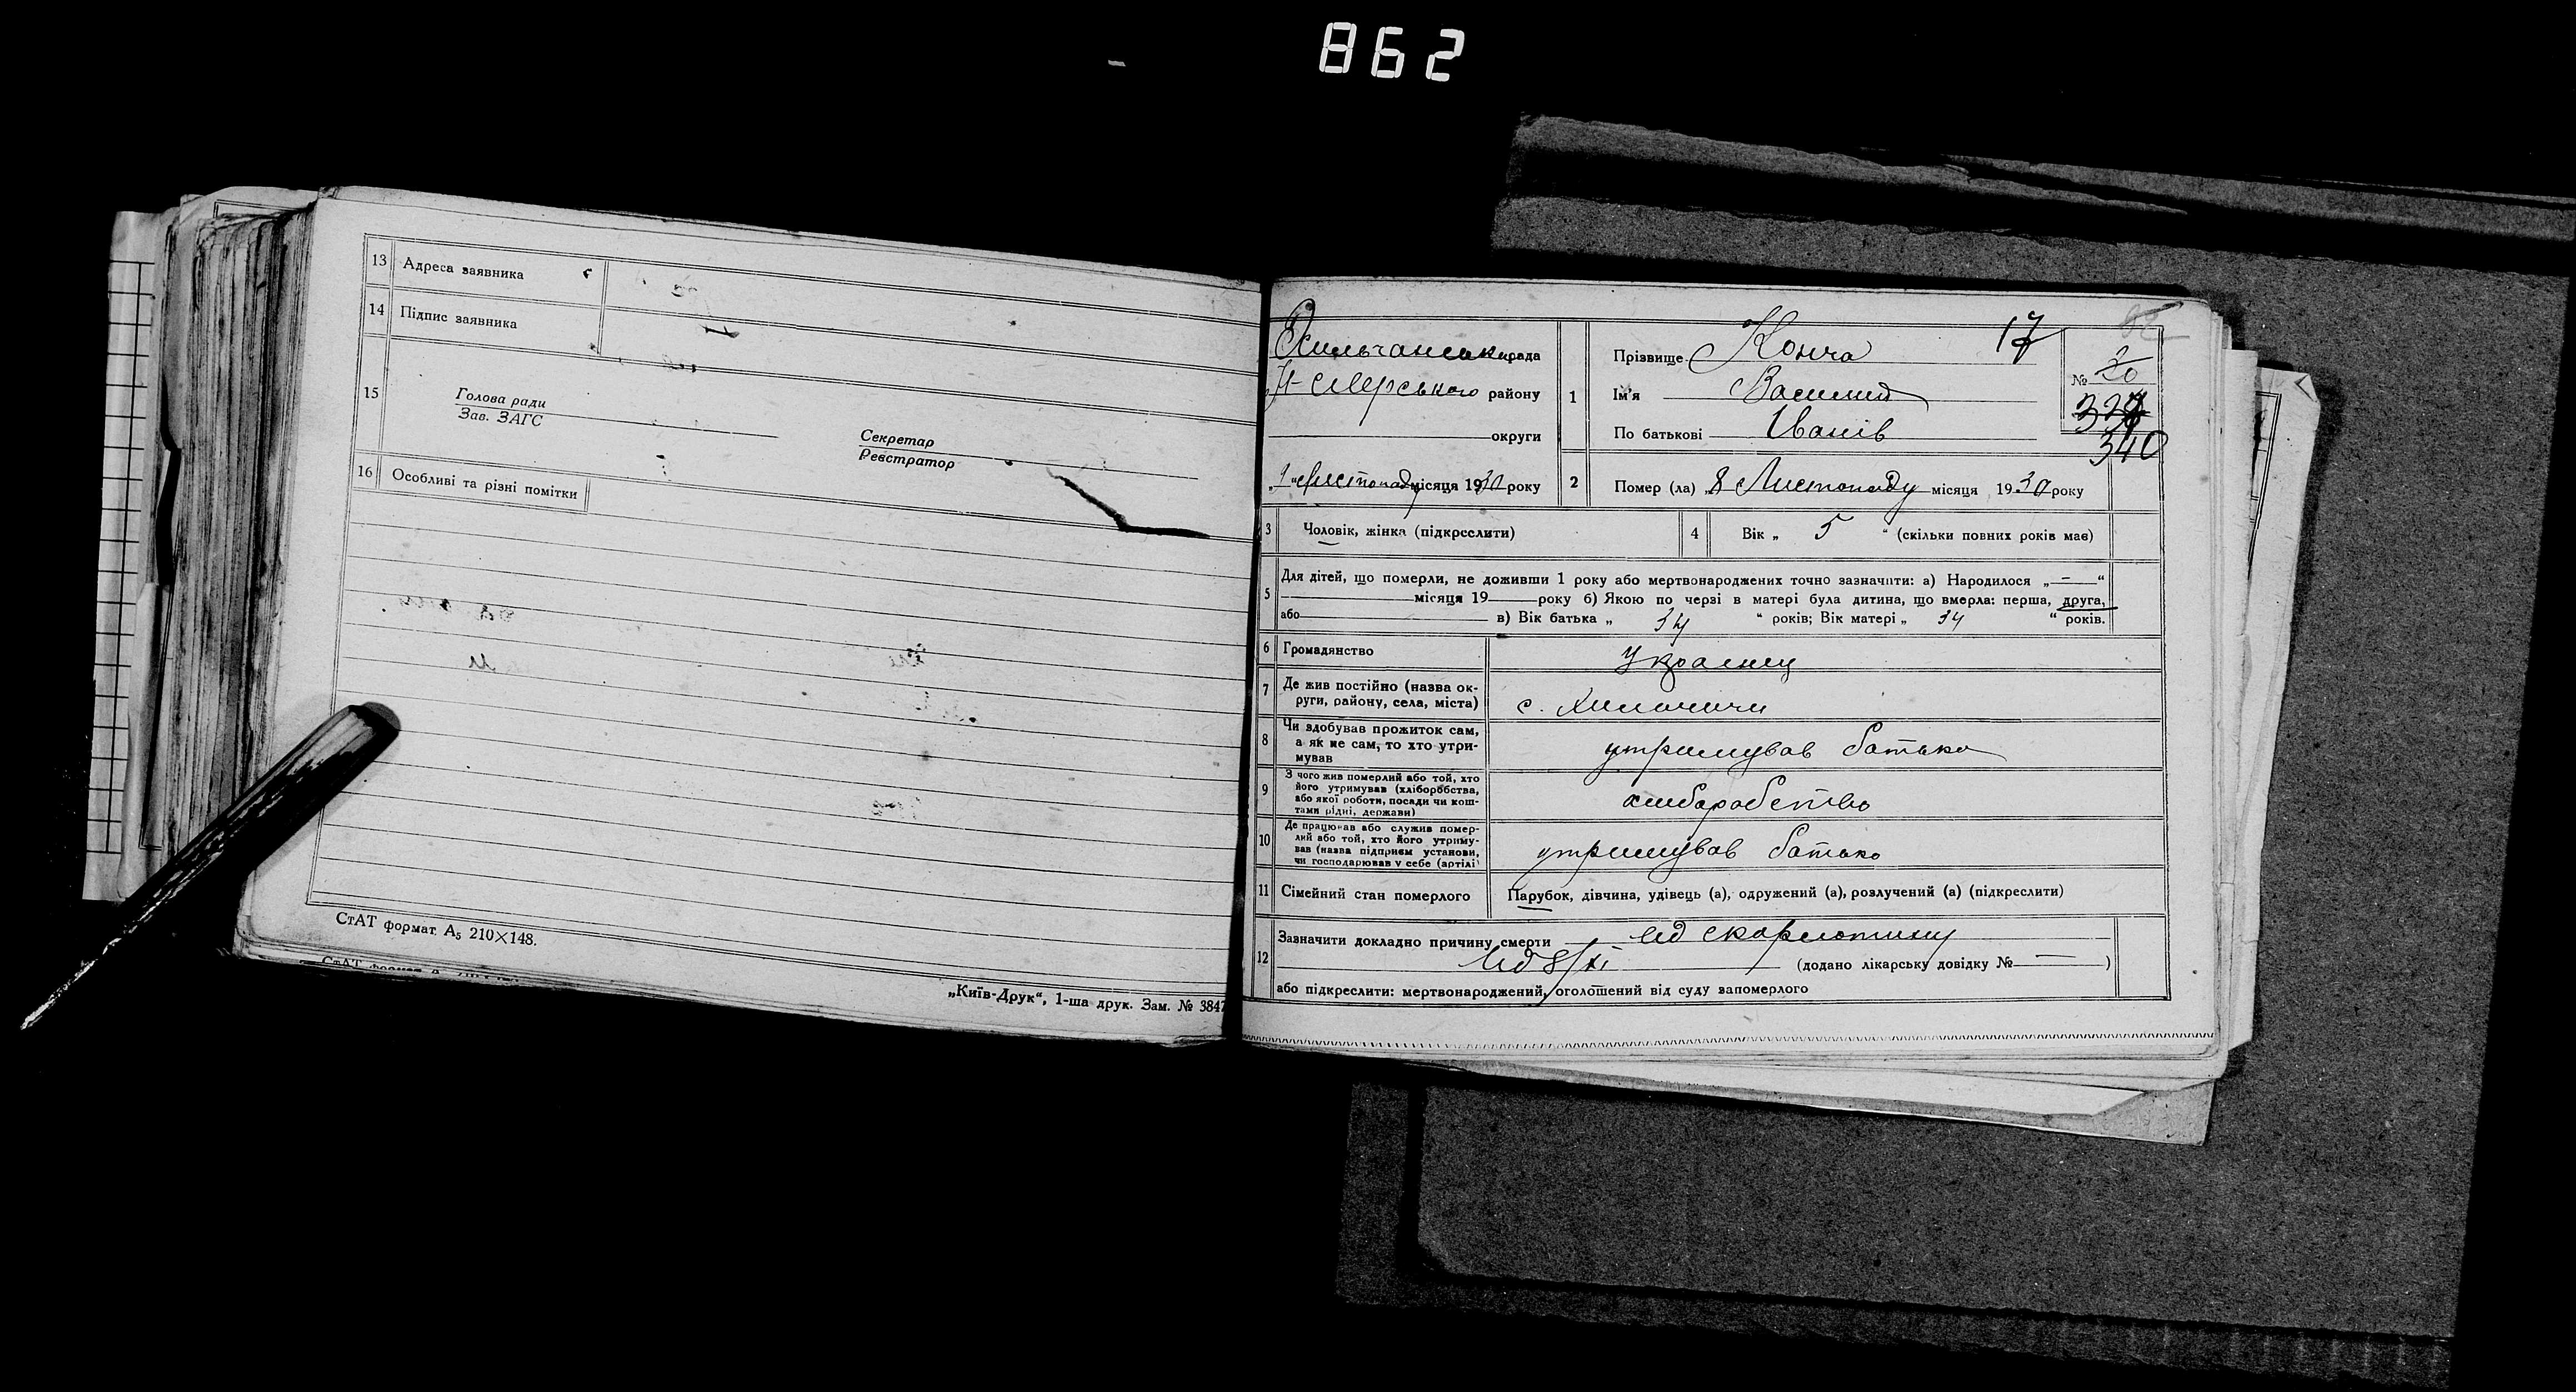 862
13 Адреса заявника
14 Підпис заявника
15
Голова ради
Зав. ЗАГС
Секретар
Реєстратор
16 Особливі та різні помітки
СтАТ формат. А5 210×148.
„Київ-Друк“, 1-ша друк. Зам. № 3847
рада
району
округи
„ Листопаду місяця 1930 року
1 Прізвище Конча
Ім'я Василий
По батькові Іванів
17
№ 20
340
2 Помер (ла) „8 Листопаду місяця 1930 року
3 Чоловік, жінка (підкреслити)
4 Вік „ 5 “ (скільки повних років має)
5 Для дітей, що померли, не доживши 1 року або мертвонароджених точно зазначити: а) Народилося „ — “
місяця 19 року б) Якою по черзі в матері була дитина, що вмерла: перша, друга,
або в) Вік батька „ 34 “ років; Вік матері „ 34 “ років.
6 Громадянство Украинец
7 Де жив постійно (назва округи, району, села, міста) с.
8 Чи здобував прожиток сам, а як не сам, то хто утримував утримував батько
9 З чого жив померлий або той, хто його утримував (хліборобства, або якої роботи, посади чи коштами рідні, держави)
10 Де працював або служив померлий або той, хто його утримував (назва підприєм установи, чи господарював у себе (артілі) утримував батько
11 Сімейний стан померлого Парубок, дівчина, удівець (а), одружений (а), розлучений (а) (підкреслити)
12 Зазначити докладно причину смерти від скарлотини
від 8/XI (додано лікарську довідку № — )
або підкреслити: мертвонароджений, оголошений від суду запомерлого